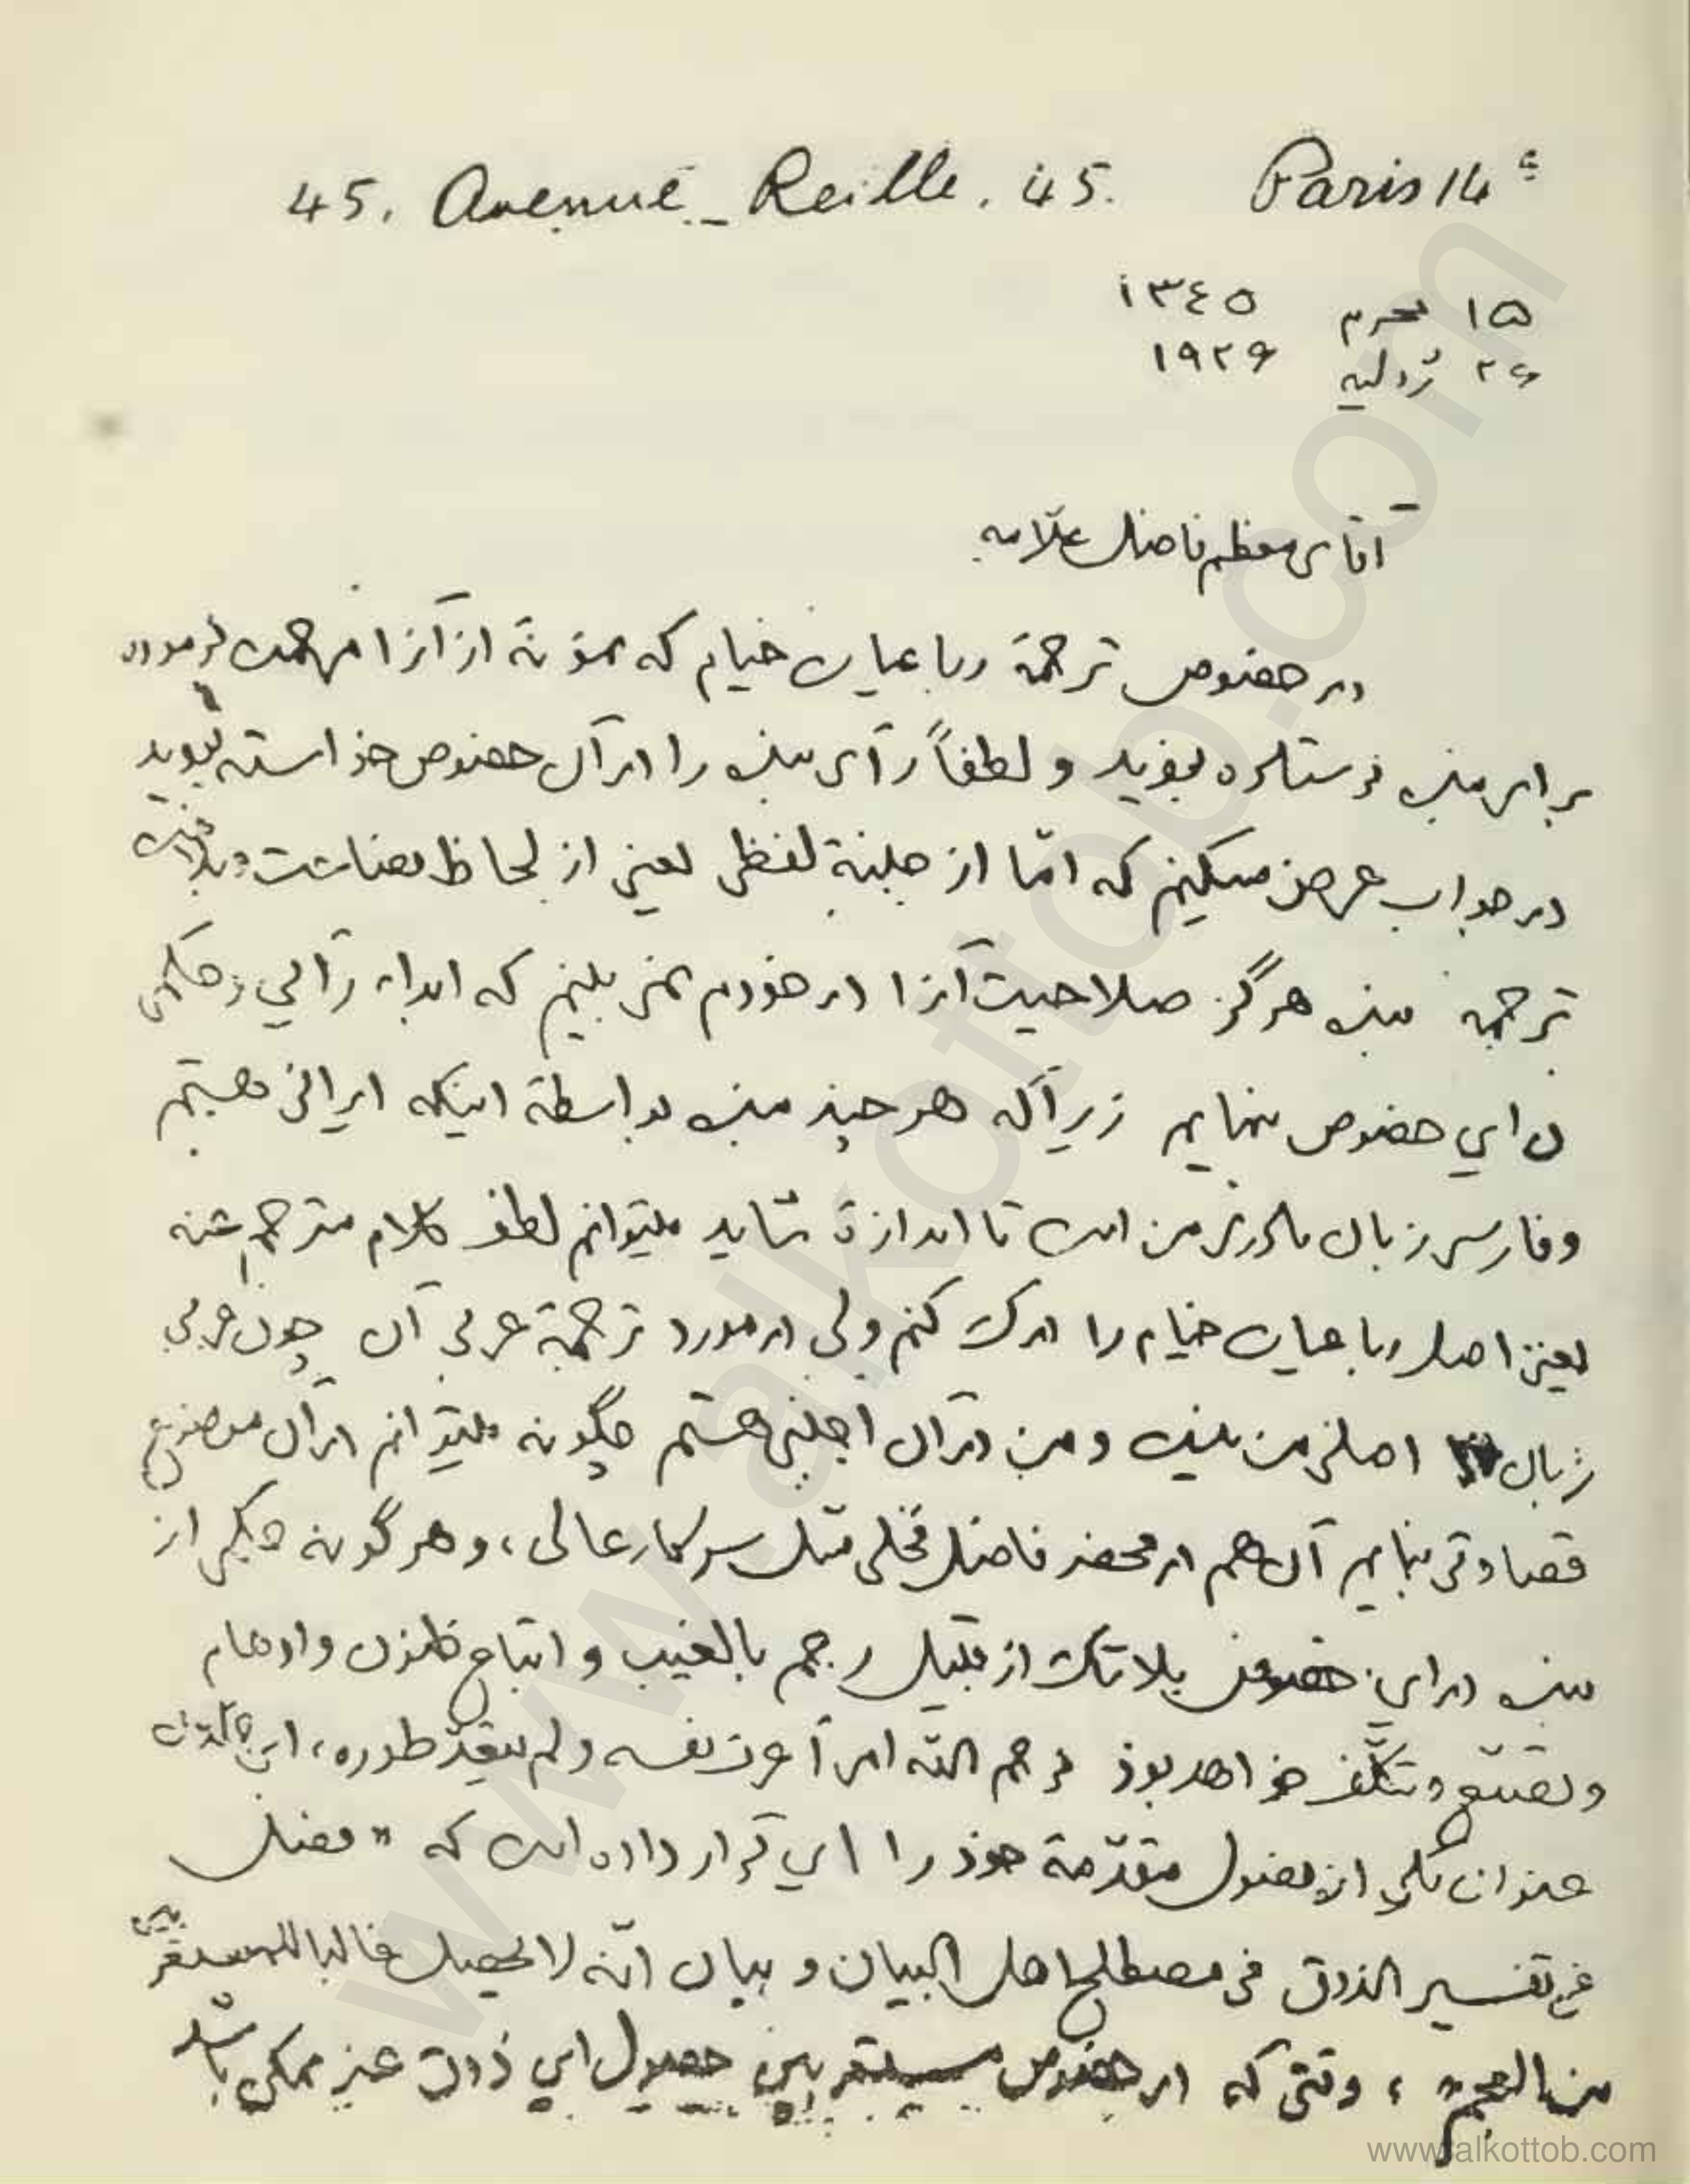 45. Avenue Reille. 45. Paris 14e
۱۵ محرم ۱۳٤۵
۲۶ ژولیه ۱۹۲۶
آقای معظم فاضل علّامه
در خصوص ترجمۀ رباعیات خیام که نمونۀ از آنرا مرحمت فرموده
برای من فرستاده بودید و لطفاً رأی من را در آن خصوص خواسته بودید
در جواب عرض میکنم که امّا از جنبۀ لفظی یعنی از لحاظ فصاحت و بلاغت
ترجمه من هرگز صلاحیت آنرا در خودم نمی بینم که ابداء رأیی و حکمی
در این خصوص بنمایم زیرا که هر چند من بواسطۀ اینکه ایرانی هستم
و فارسی زبان مادری من است تا اندازۀ شاید میتوانم لطف کلام مترجم عنه
یعنی اصل رباعیات خیام را درک کنم ولی در مورد ترجمۀ عربی آن چون عربی
زبان اصلی من نیست و من در آن اجنبی هستم چگونه میتوانم در آن موضوع
قضاوتی بنمایم آن هم در محضر فاضل فحلی مثل سرکار عالی، و هر گونه حکمی از
من در این خصوص بلاشک از قبیل رجم بالغیب و اتباع ظنون و اوهام
و تصنّع و تکلّف خواهد بوذ فرحم الله امرأ عرف نفسه و لم یتعدّ طوره، ابن خلدون
عنوان یکی از فصول مقدّمۀ خوذ را این قرار داده است که «فصل
فی تفسیر الذوق فی مصطلح اهل البیان و بیان انّه لا یحصل غالبا للمستعربین
من العجم»، وقتی که در خصوص مستعربین حصول این ذوق غیر ممکن باشد
www.alkottob.com
www.alkottob.com